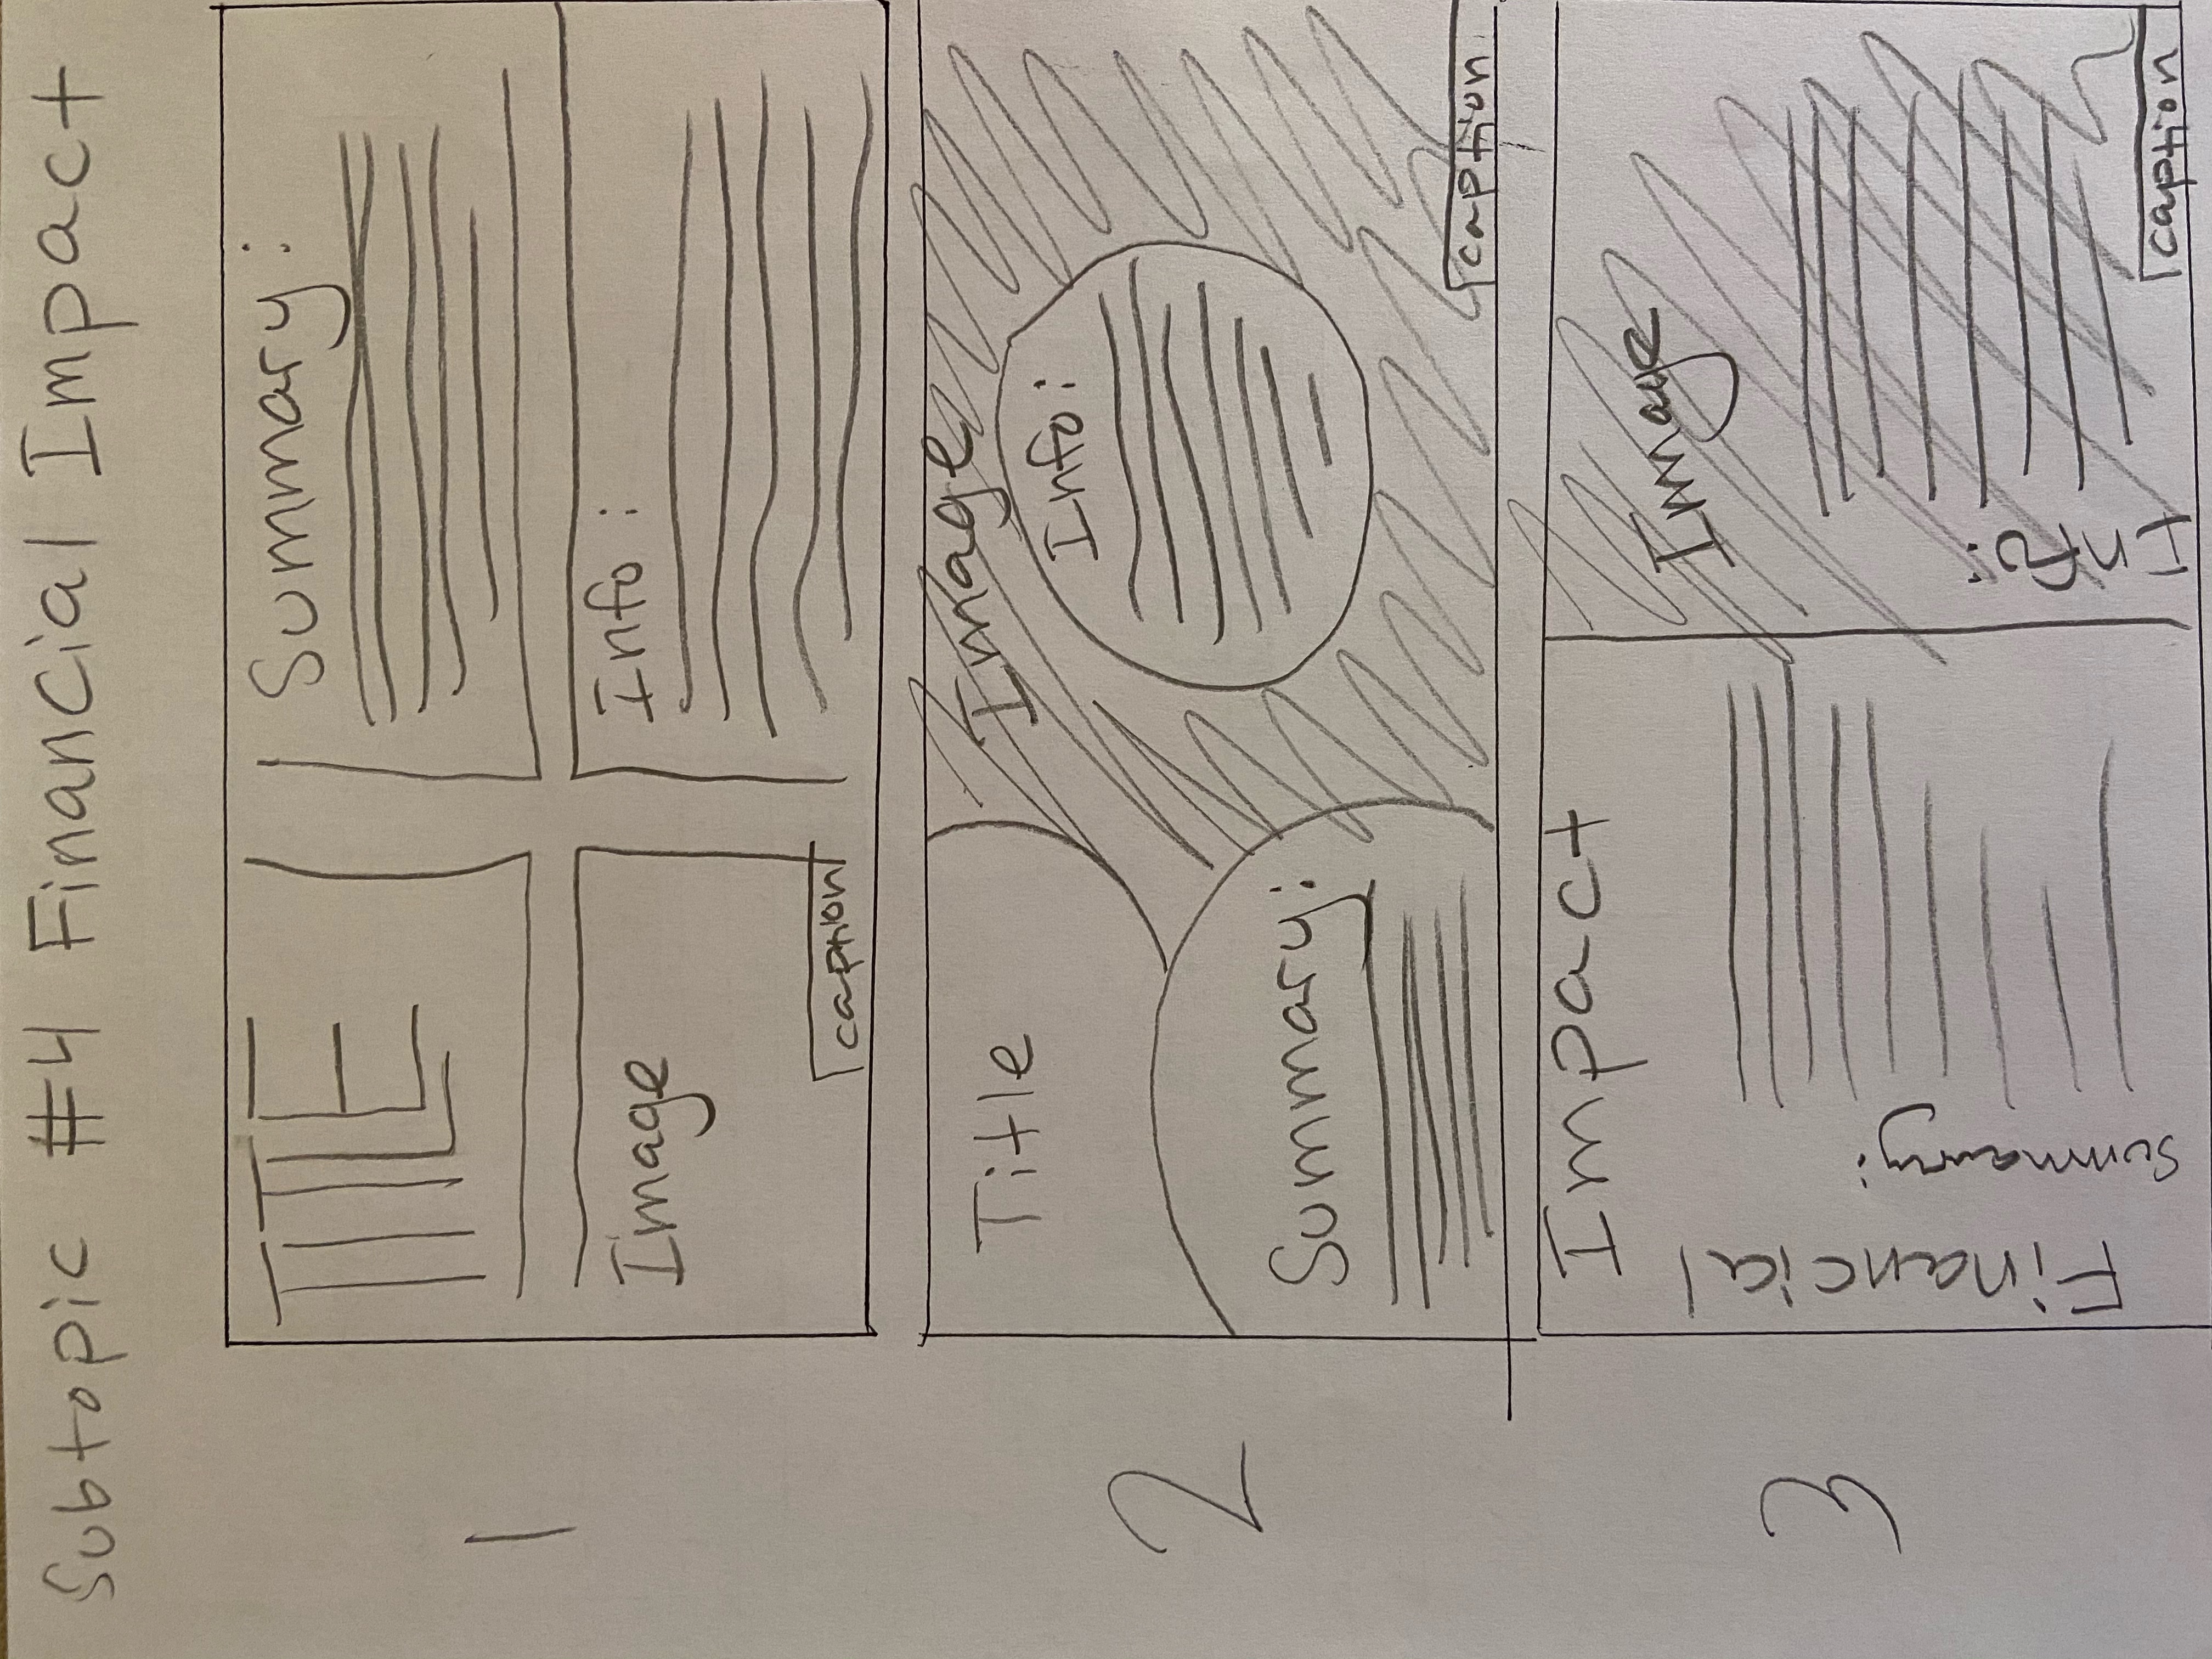 Subtopic #4 Financial Impact
1
TITLE
Summary:
Image
caption
Info:
2
Title
Image
Info:
Summary:
caption
3
Financial Impact
Summary:
Image
Info:
caption